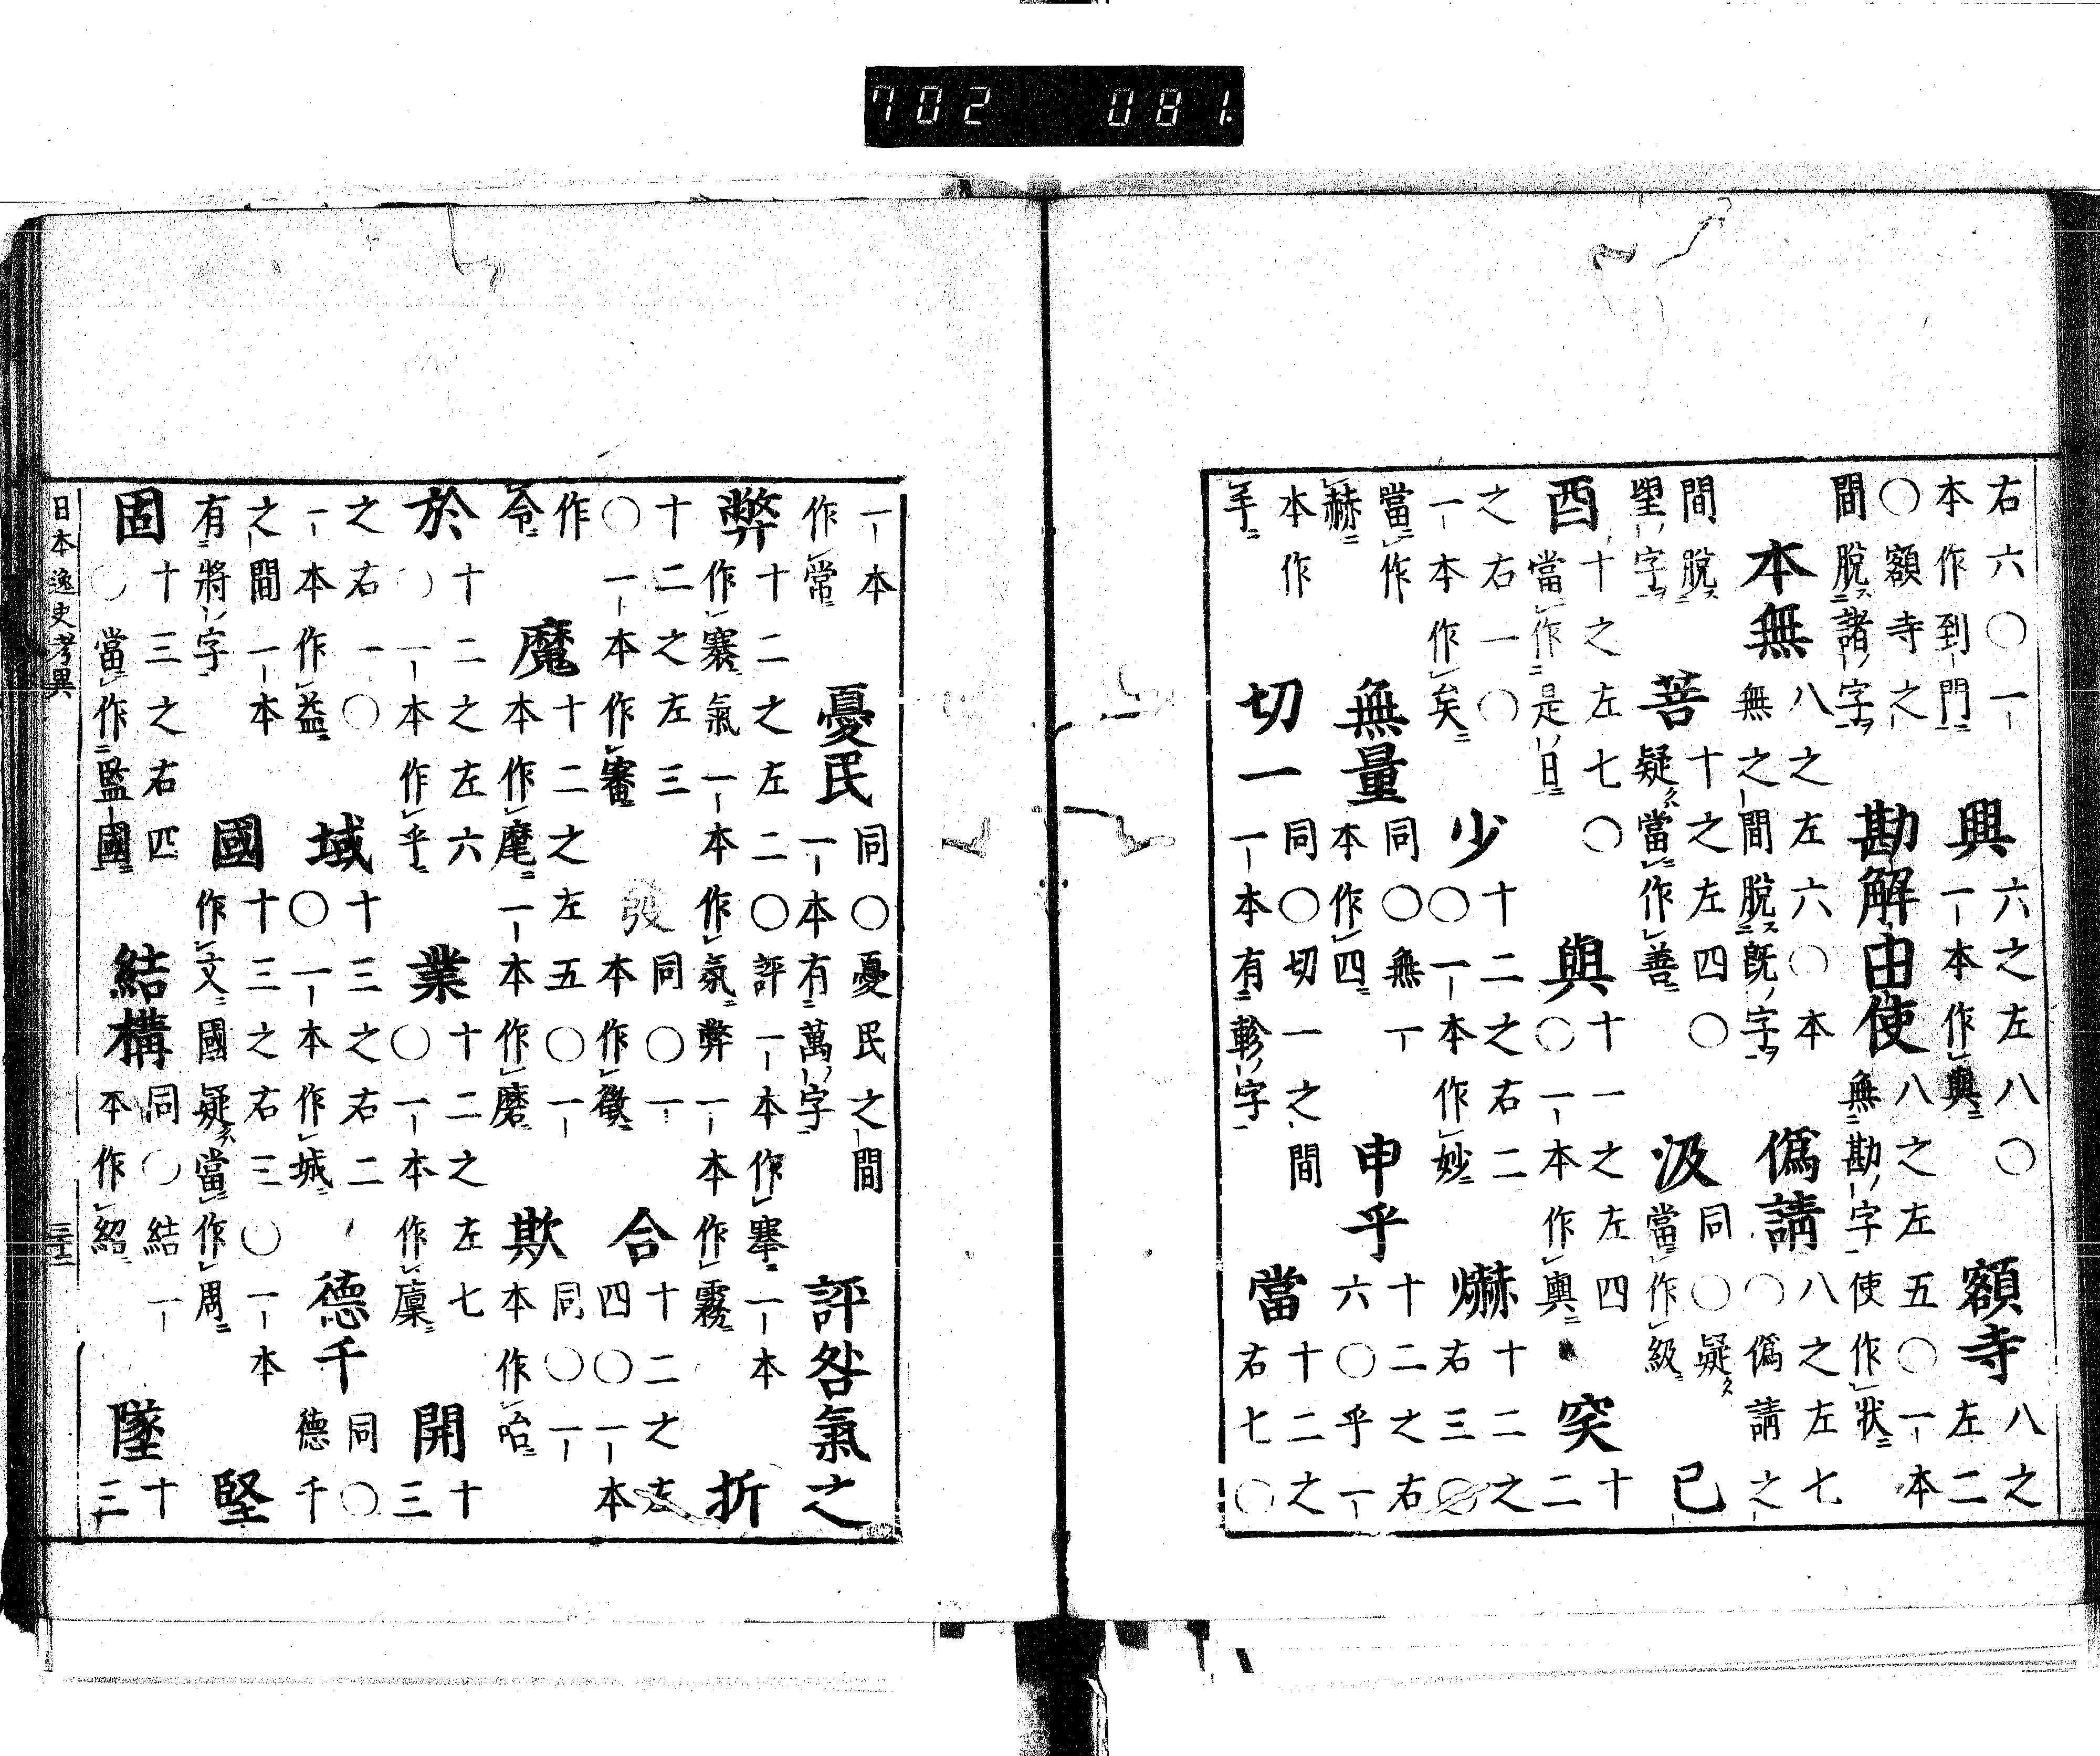 右六〇一本作到門興六之左八〇一本作與額寺八之左二
〇額寺之間脫諸字勘解由使八之左五〇一本無勘字使作狀
本無八之左六〇本無之間脫既字僞請八之左七〇僞請之
間脫望字菩十之左四〇疑當作善汲同〇疑當作級已
酉十之左七〇當作是日與十一之左四〇一本作輿突十二
之右一〇一本作矣少十二之右二〇一本作妙爀十二之右三〇
當作赫無量同〇無一本作四申乎十二之右六〇乎一
本作手切一同〇切一之間一本有軫字當十二之右七〇
一本作常憂民同〇憂民之間一本有萬字評咎氣之
弊十二之左二〇評一本作搴一本作褰氣一本作氛弊一本作霧折
十二之左三〇一本作審發同〇一本作徵合十二之左四〇一本
作令魔十二之左五〇一本作麾一本作磨欺同〇一本作詒
於十二之左六〇一本作乎業十二之左七〇一本作稟開十三
之右一〇一本作益域十三之右二〇一本作城德千同〇德千
之間一本有將字國十三之右三〇一本作文國疑當作周堅
固十三之右四〇當作監國結構同〇結一本作紹墜十三
日本逸史考異
702 081